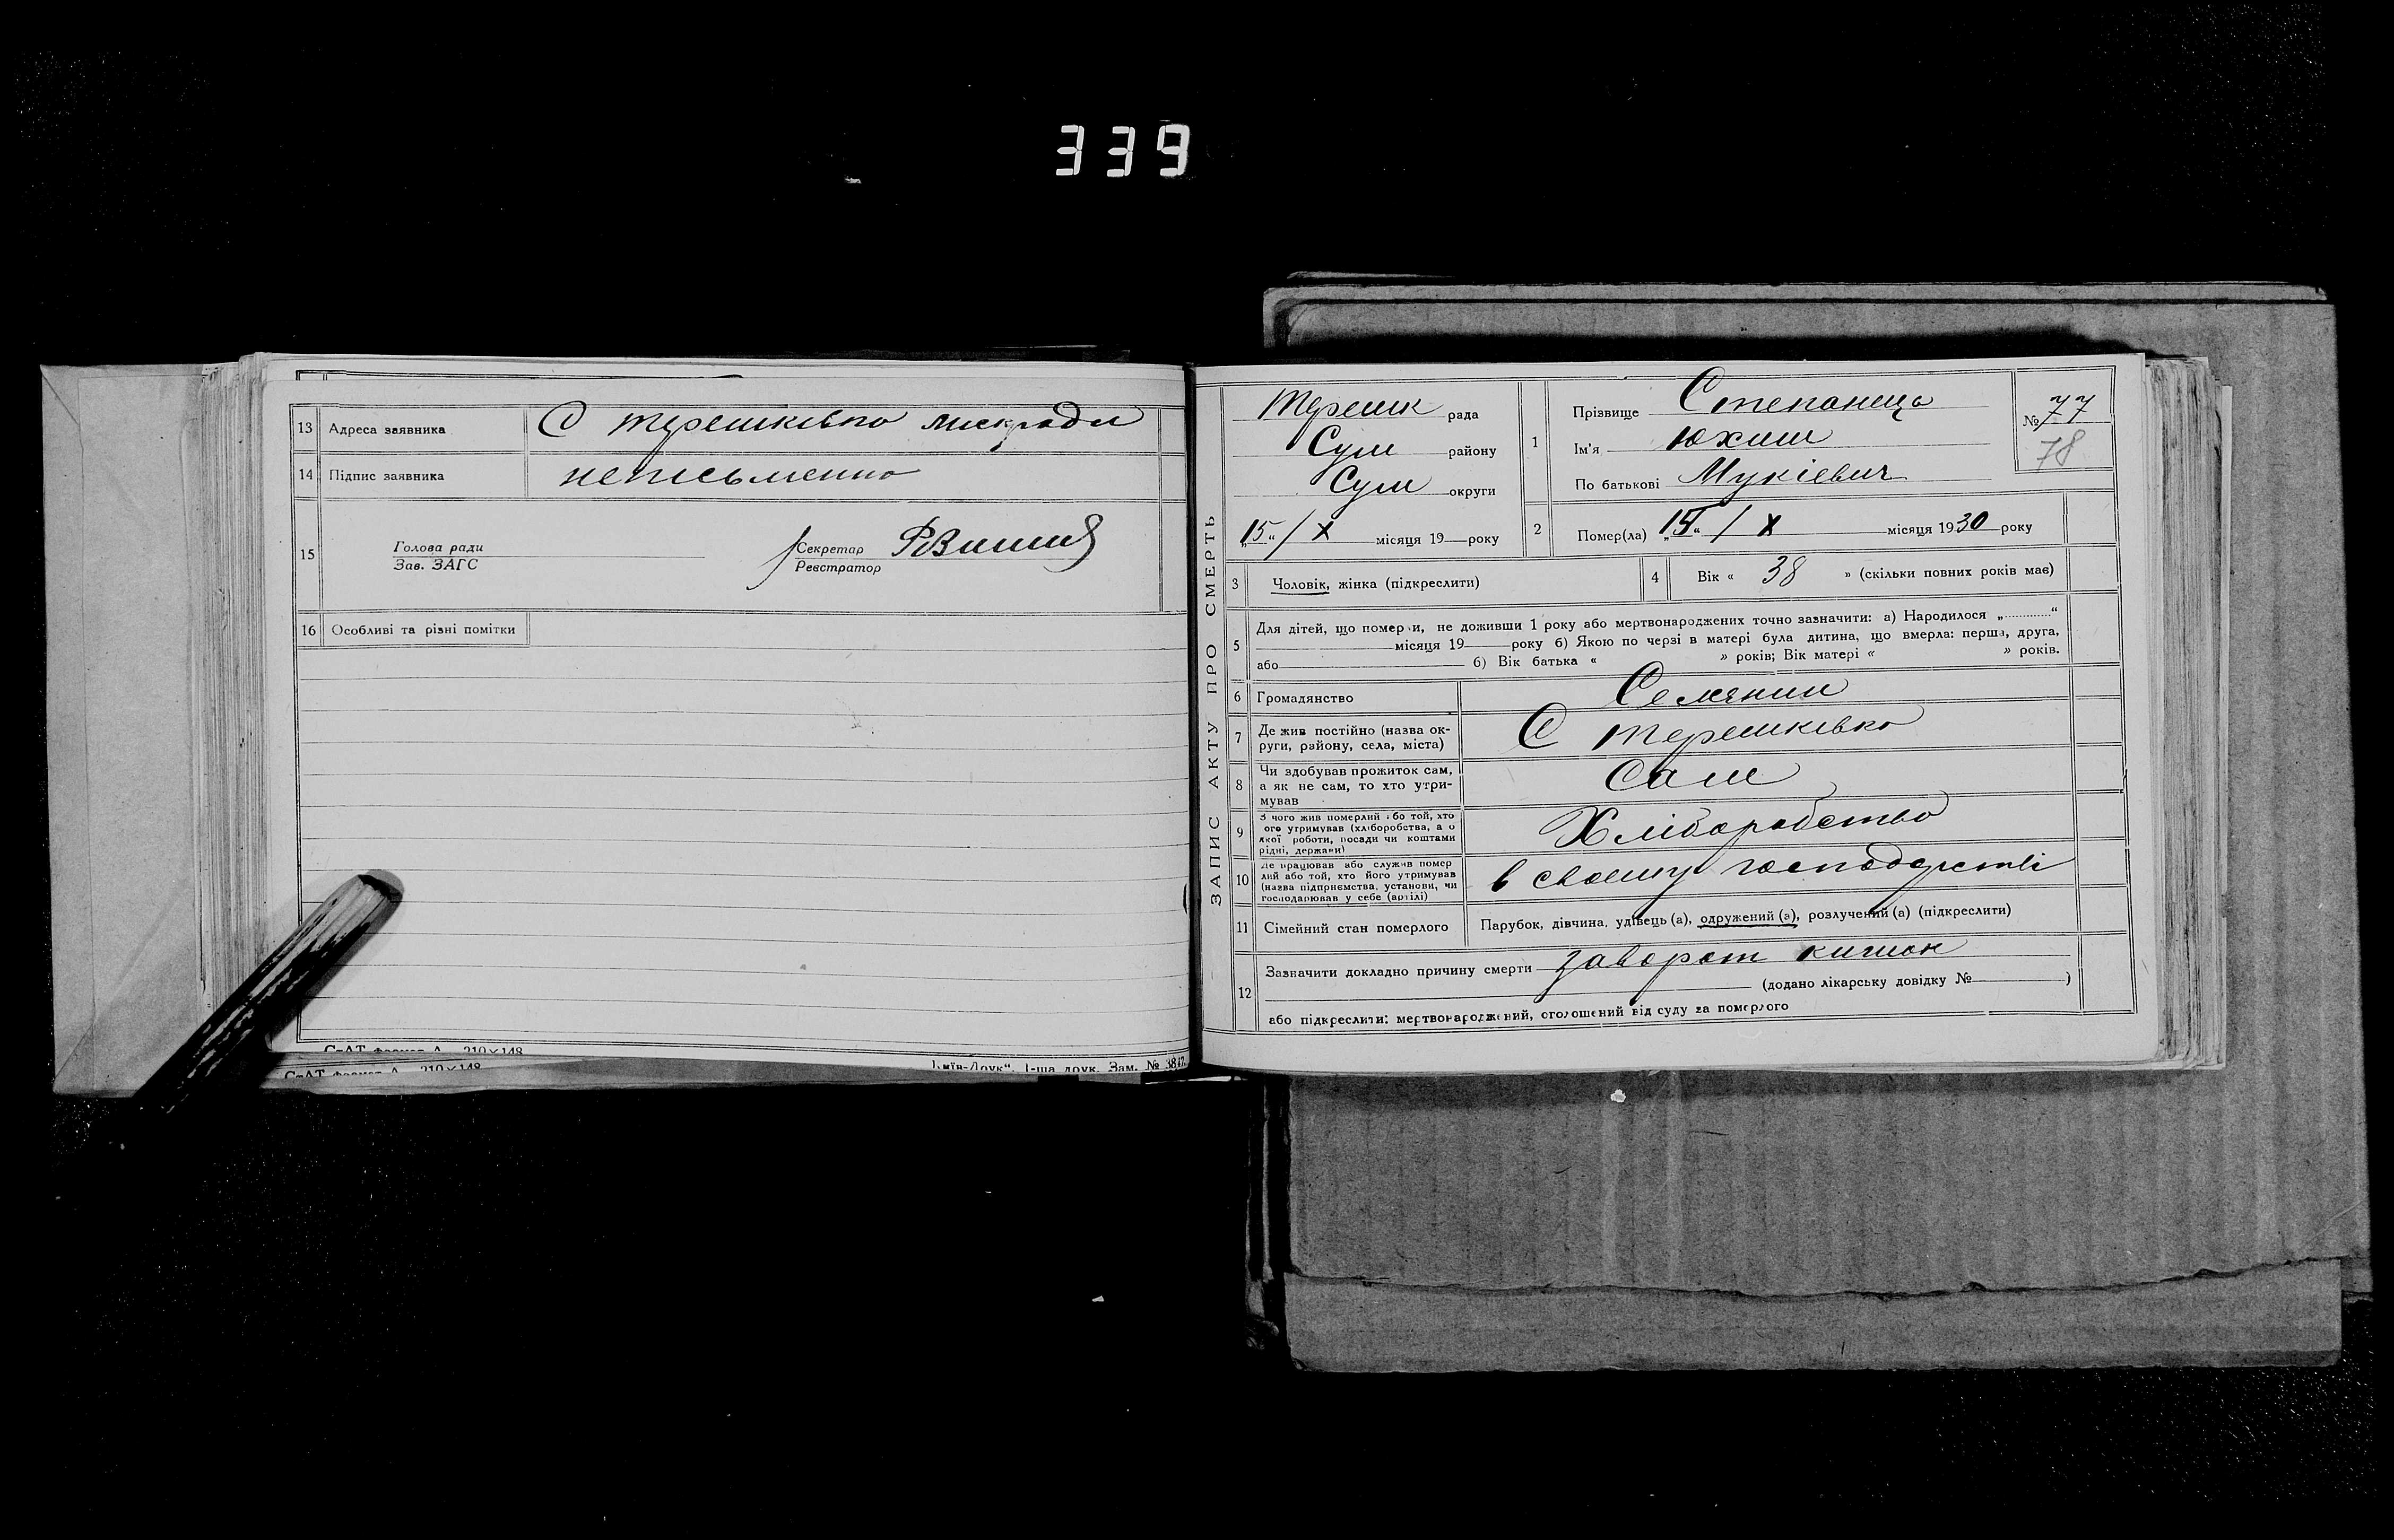 339
13 Адреса заявника С терешківка мискради
14 Підпис заявника неписьменно
15 Голова ради
Зав. ЗАГС
Секретар
Реєстратор
16 Особливі та різні помітки
СтАТ формат А 210×148
СтАТ формат А 210×148
Київ-Друк“. 1-ша друк. Зам. №
ЗАПИС АКТУ ПРО СМЕРТЬ
Терешк рада
Сум району
Сум округи
„15“ / X місяця 19 року
1 Прізвище Степанець
Ім'я Юхим
По батькові
№ 77
78
2 Помер(ла) „15“ / X місяця 1930 року
3 Чоловік, жінка (підкреслити)
4 Вік « 38 » (скільки повних років має)
5 Для дітей, що померли, не доживши 1 року або мертвонароджених точно зазначити: а) Народилося „ “
місяця 19 року б) Якою по черзі в матері була дитина, що вмерла: перша, друга,
або б) Вік батька « » років; Вік матері « » років.
6 Громадянство Селянин
7 Де жив постійно (назва ок-
руги, району, села, міста) С терешківка
8 Чи здобував прожиток сам,
а як не сам, то хто утри-
мував Сам
9 З чого жив померлий або той, хто
його утримував (хліборобства, а о
якої роботи, посади чи коштами
рідні, держави) Хліборобство
10 Де працював або служив помер
лий або той, хто його утримував
(назва підприємства, установи, чи
господарював у себе (артілі) в своему господарстві
11 Сімейний стан померлого Парубок, дівчина, удівець (а), одружений (а), розлучений (а) (підкреслити)
12 Зазначити докладно причину смерти заворот кишок
(додано лікарську довідку № )
або підкреслити: мертвонароджений, оголошений від суду за померлого